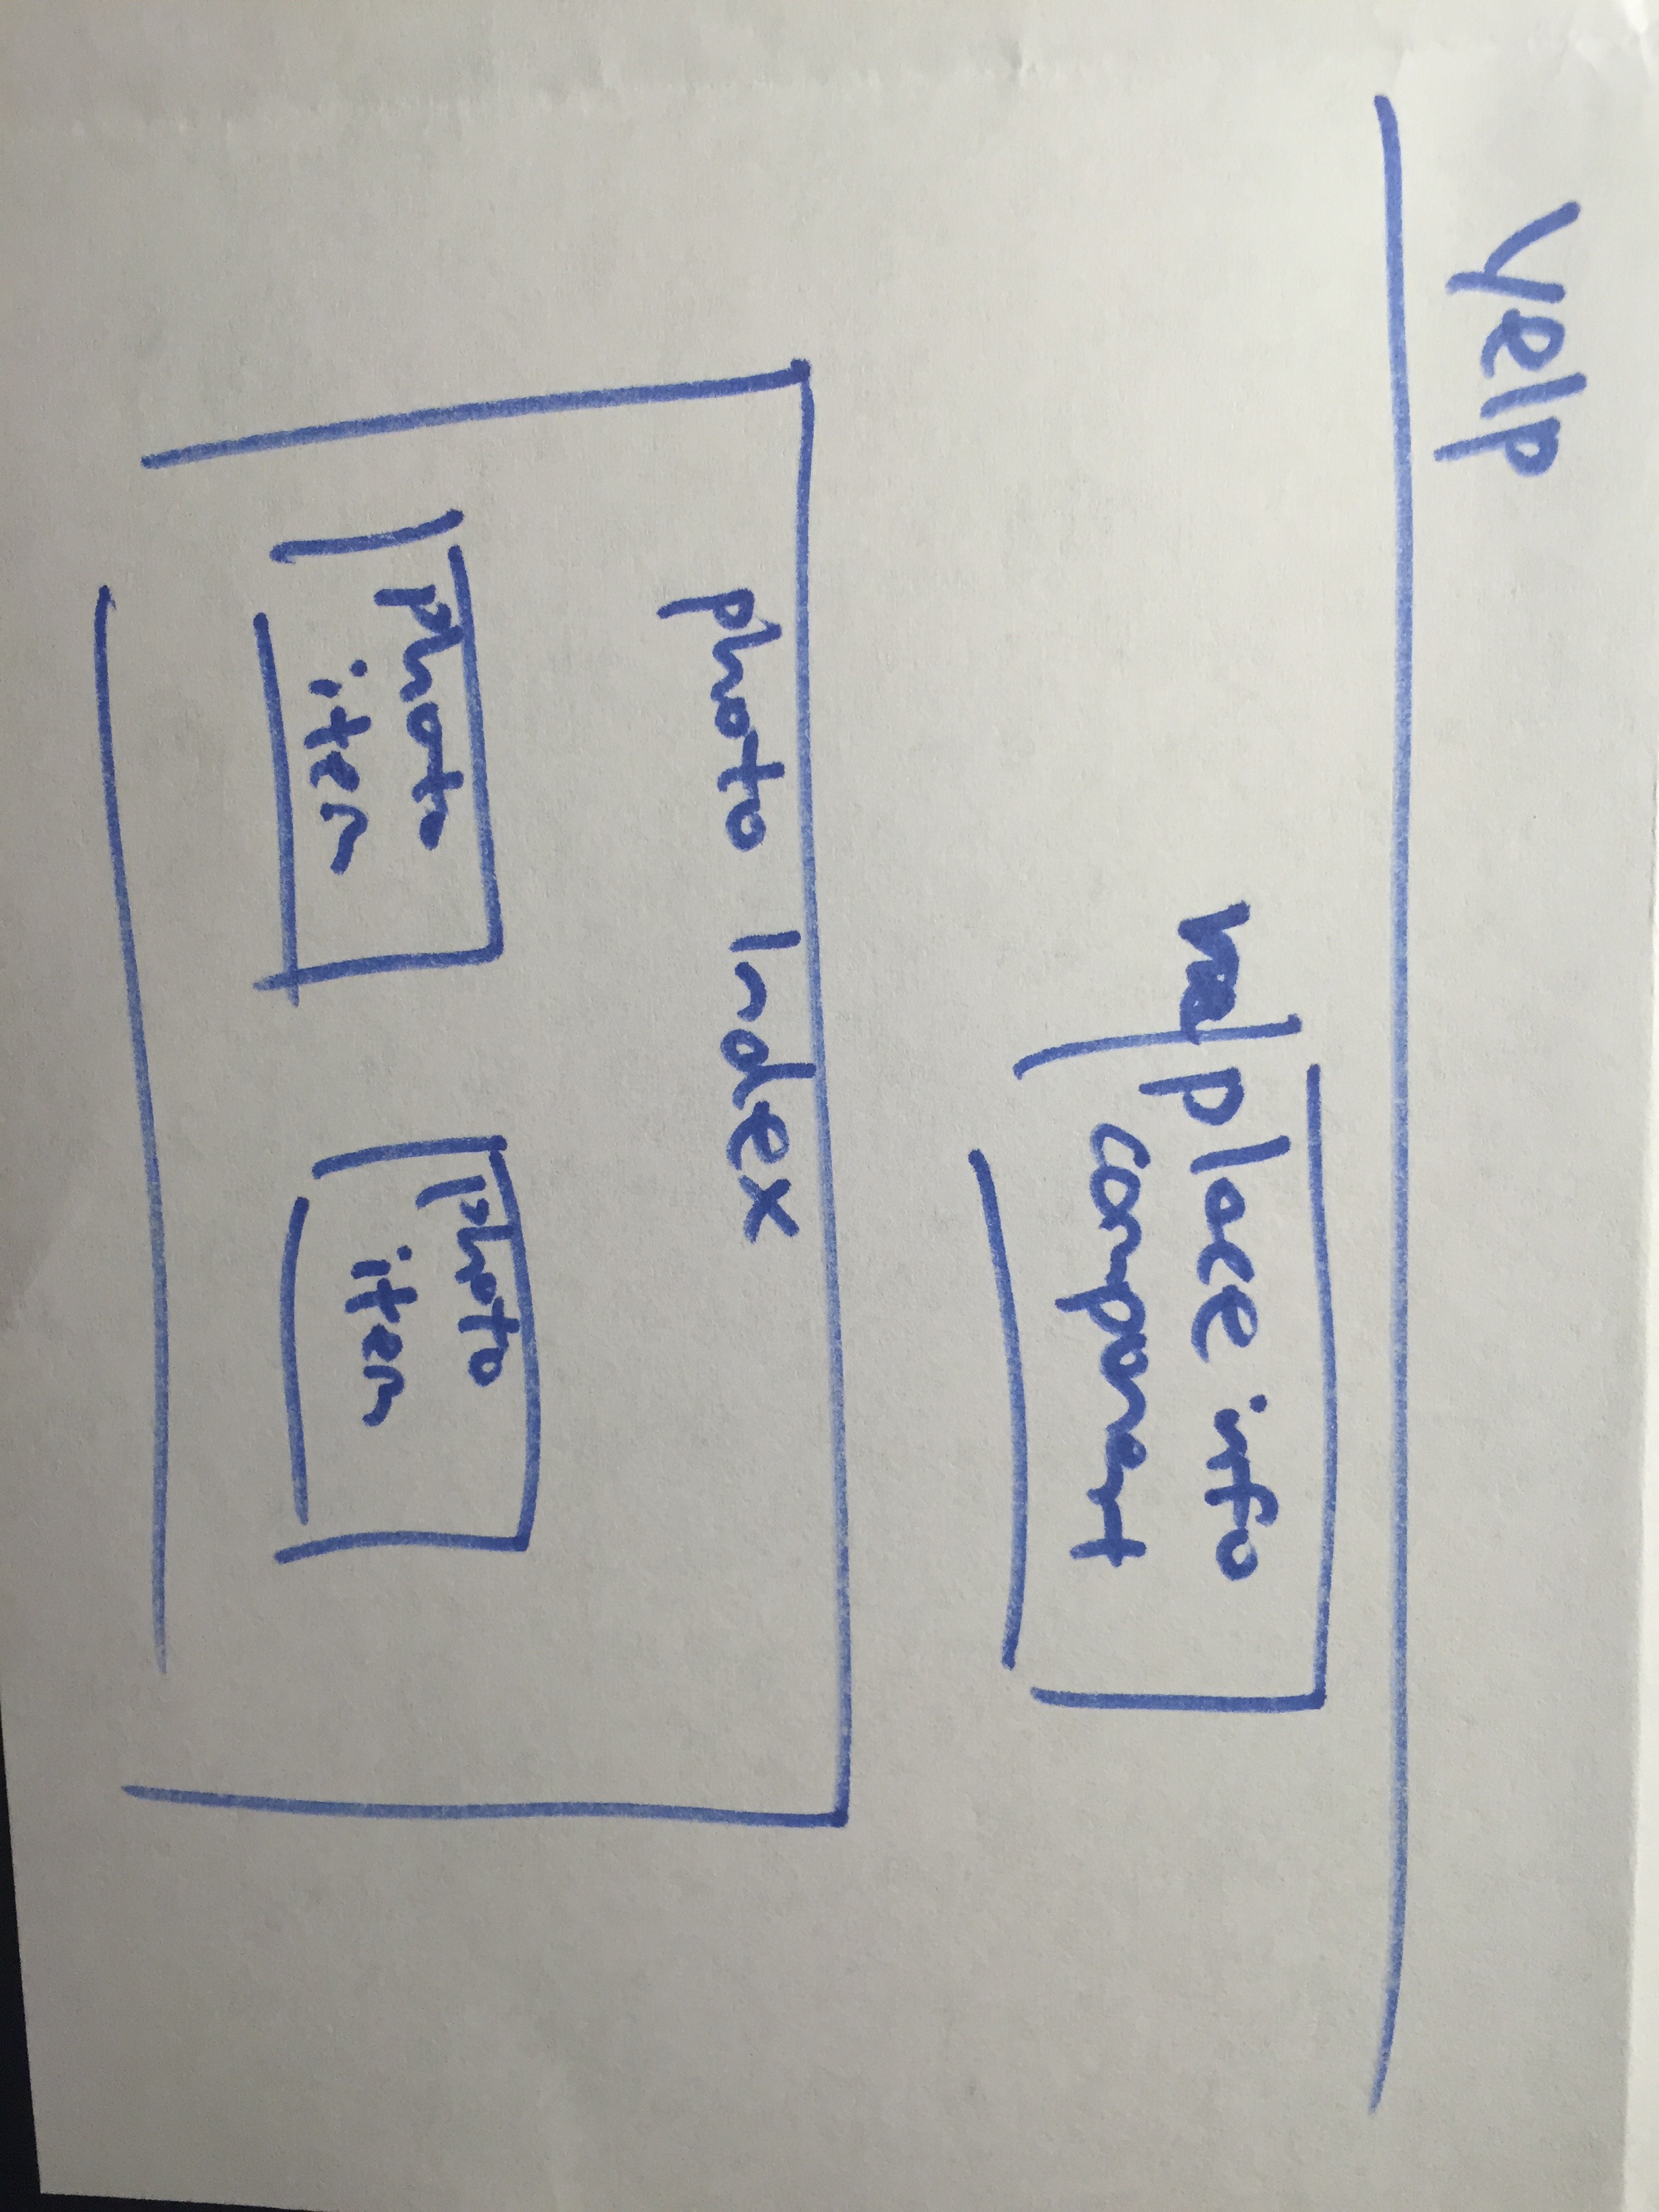 Yelp
place info
component
photo Index
photo
item
photo
item